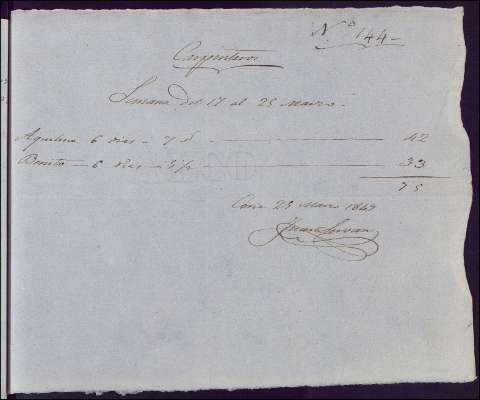 Nº 144-
Carpinteros
Semana del 17 al 25 Marzo.
Aquilino 6 dias - 7 42
Benito - 6 dias - 5½ 33
75
Coria 25 Marzo 1849
Juan Servan